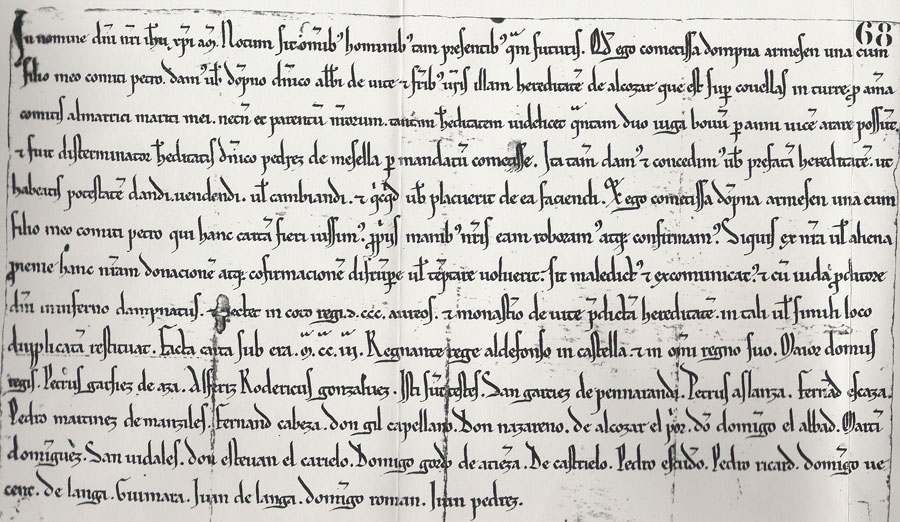 68
In nomine dñi nr̄i ihū xp̄i am̄. Notum sit om̄ib' hominib' tam presentib' qm̄ futuris. Q̄d ego cometissa dompna armesen una cum
filio meo comiti petro. dam' ub̄ dōpno dn̄ico abb̄i de uite ⁊ fr̄ib' ur̄is illam hereditatē de alcozar que est sup̄ couellas in turre. p̄ aīa
comitis almarrici mariti mei. necn̄ et parentū meorum. tantam h̄editatem uidelicet qn̄tam duo iuga bouū p̄ anni uicē arare possūt.
⁊ fuit disterminator h̄editatis dn̄ico pedrez de mesella p̄ mandatū cometisse. Ita tam dam' ⁊ concedim' ub̄ prefatā hereditatē. ut
habeatis potestatē dandi. uendendi. ul̄ cambiandi. ⁊ qcqd ub̄ placuerit de ea faciendi. Ego cometissa dōpna armesen una cum
filio meo comiti petro qui hanc cartā fieri iussim'. p̄p̄iis manib' nr̄is eam roboram' atq; confirmam'. Siquis ex nr̄a ul̄ aliena
p̄genie hanc nr̄am donacionē atq; cōfirmacionē disrūpe ul̄ tēptare uoluerit. sit maledict' ⁊ excomunicat'. ⁊ cū iuda p̄ditore
dn̄i in inferno dampnatus. ⁊ pectet in coto regi. d. ccc. aureos. ⁊ monast̄io de uite p̄dictā hereditatē. in tali ul̄ simili loco
dupplicatā restituat. Facta carta sub era. m̄. cc. iii. Regnante rege aldefonso in castella. ⁊ in om̄i regno suo. Maior domus
regis. Petrus garsiez de aza. Alferiz Rodericus gonzaluez. Isti sūt testes. San garciez de pennaranda. Petrus aslanza. Fernād escaza.
Pedro martinez de manziles. Fernand cabeza. don gil capellano. Don nazareno. de alcozar el p̄or. dō domīgo el abbad. Marti
domīguez. San uidales. don esteuan el carielo. Domīgo gordo de arieza. De castrielo. Pedro escudo. Pedro ricard. domīgo ue
cent. de langa. Guimara. Juan de langa. domīgo roman. Juan pedrez.